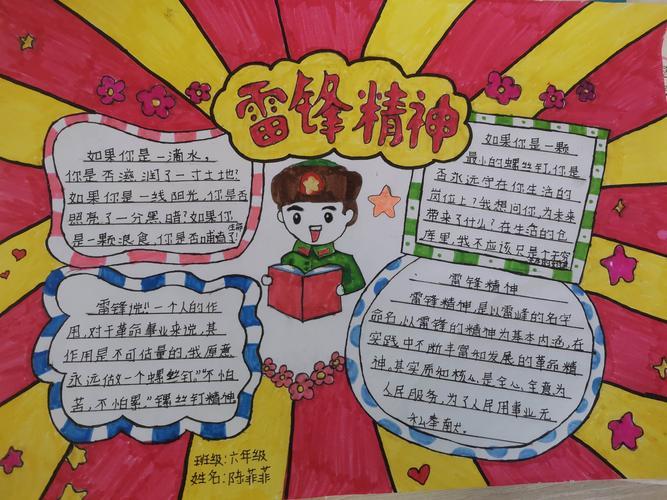 雷锋精神
如果你是一滴水，
你是否滋润了一寸土地？
如果你是一线阳光，你是否
照亮了一分黑暗？如果你
是一颗粮食，你是否哺育了生命
如果你是一颗
最小的螺丝钉，你是
否永远守在你生活的
岗位上？我想问你，为未来
带来了什么？在生活的仓
库里，我不应该只是个无穷
雷锋说：“一个人的作
用，对于革命事业来说，其
作用是不可估量的，我愿意
永远做一个螺丝钉。”“不怕
苦，不怕累。”螺丝钉精神
雷锋精神
雷锋精神，是以雷峰的名字
命名，以雷锋的精神为基本内涵，在
实践中不断丰富和发展的革命精
神。其实质和核心是全心全意为
人民服务，为了人民用事业无
私奉献。
班级：六年级
姓名：陈菲菲